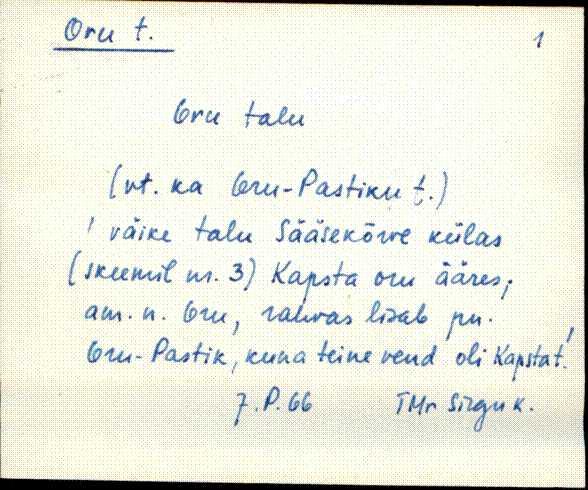 Oru t.
1
Oru talu
(vt. ka Oru-Pastiku t.)
' väike talu Sääsekõrve külas
(skeemil nr. 3) Kapsta oru ääres;
am. n. Oru, rahvas lisab pn.
Oru-Pastik, kuna teine vend oli Kapstat.'
7.P.66 TMr Sirguk.